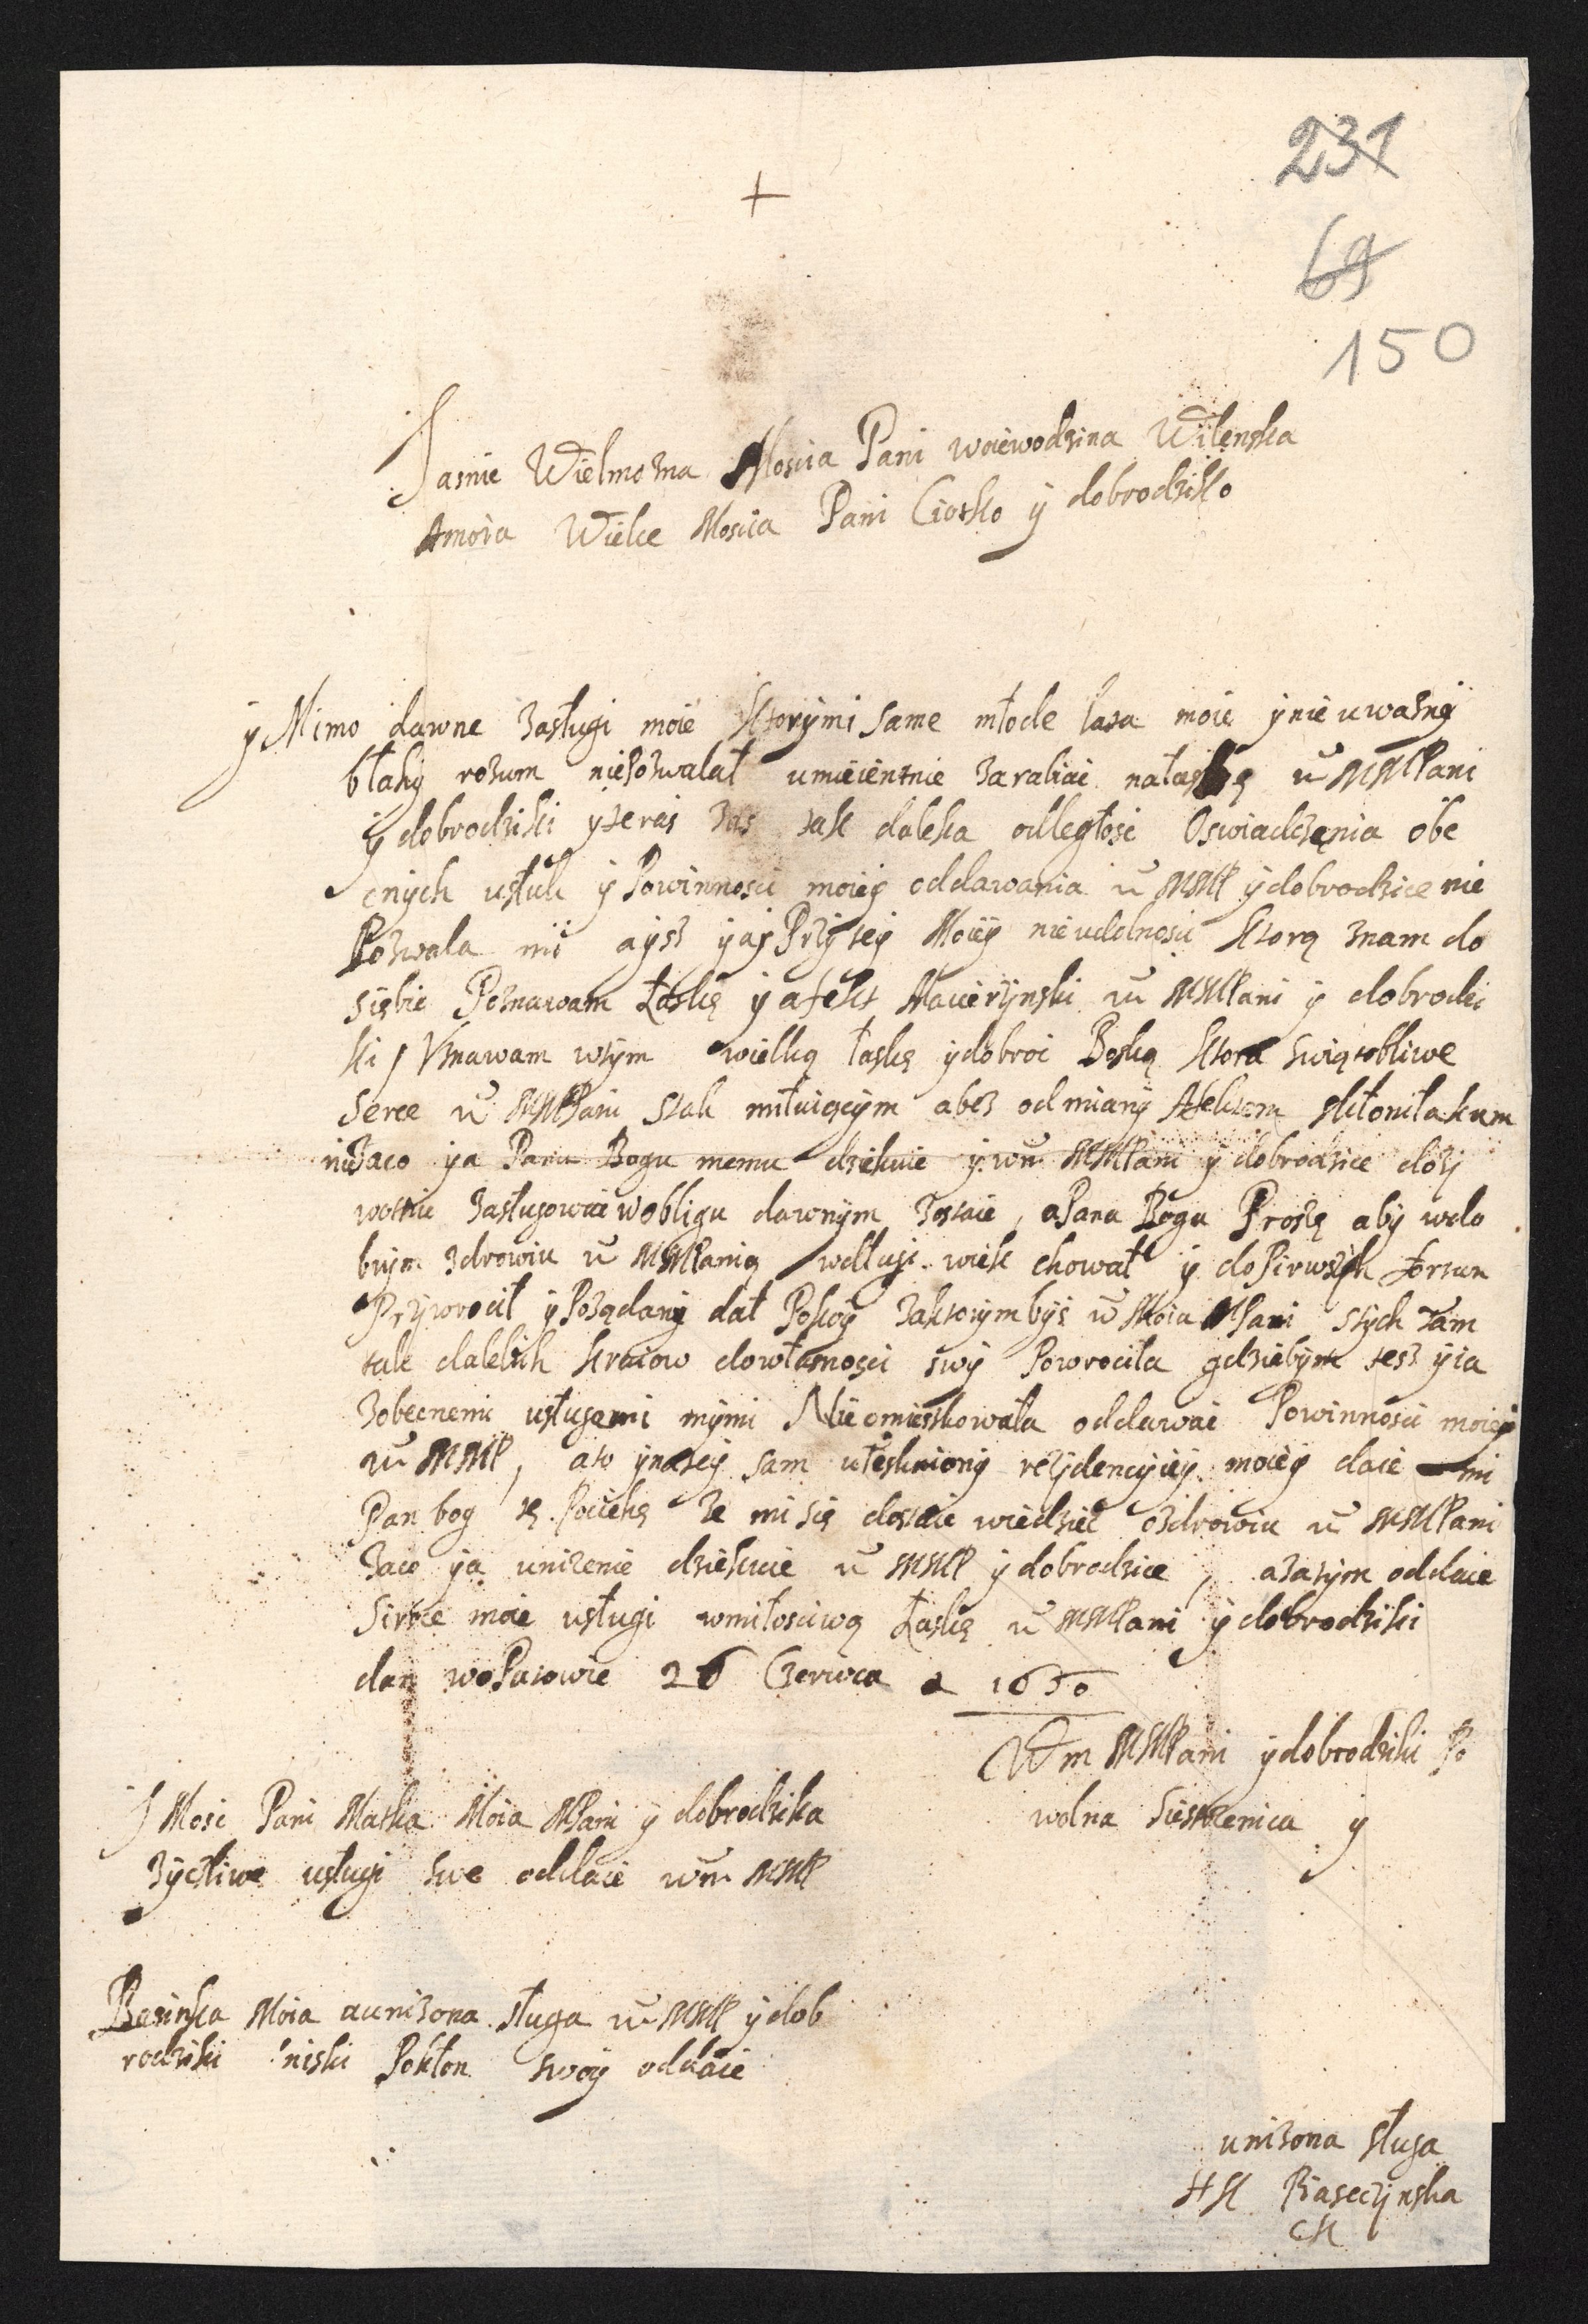 231
+
69
150
Jasnie Wielmozna Moscia Pani woiewodzina Wilenska
Amoia Wielce Moscia Pani Ciotko y dobrodziko
y Mimo dawne zasługi moie ktorymi same młode lata moie y nie uwazny
błahy rozum niepozwalał umieientnie zarabiac nałaskę w MMPani
y dobrodziki y teras zas tak daleka odległosc Oswiadczenia obe
cnych usłuk y Powinnosci moiey oddawania w MMP y dobrodzice nie
Pozwala mi aysz yay Przy tey Moiey nieudolnosci ktorą znam do
siębie Poznawam Łaskę y afekt Macierzynski w MMPani y dobrodzi
ki / Vznawam wtym wielką łaskę y dobroc Boską ktora swiątobliwe
Serce w MMPani stak miłuiącym abez odmiany Afektem skłoniłakum
nie zaco ya Panu Bogu memu dziekuie y wm MMPani y dobrodzice dozy
wotnie zasługowac wobligu dawnym zostaie, aPana Boga Proszę aby wdo
brym zdrowiu w MMPanią wdługi wiek chował y doPirwszych fortun
Przywrocił y Poządany dał Pokoy zaktorymbys w Moia MPani stych tam
tak dalekih kraiow dowłasnosci swy Powrociła gdziebym tesz y ia
zobecnemi usługami mymi Nie omieszkowała oddawac Powinnosci moiey
w MMP, ato ynatey sam utęskniony rezydencyiey moiey daie mi
Pan bog tę Pociehę ze mi się dostaie wiedziec ozdrowiu w MMPani
zaco ya unizenie dziekuie w MMP y dobrodzice, azatym oddaie
Sirvce moie usługi wmiłosciwą Łaskę w MMPani y dobrodziki
dan woPatowie 26 Czerwca a 1650
Wm MMPani y dobrodziki Po
wolna Siestrzenica y
J Mosc Pani Matka Moia MPani y dobrodzika
zyczliwe usługi swe oddaie wm MMP
Basinka Moia aunizona sługa w MMP y dob
rodziki niski Pokłon swoy oddaie
unizona sługa
HK Piaseczynska
CK